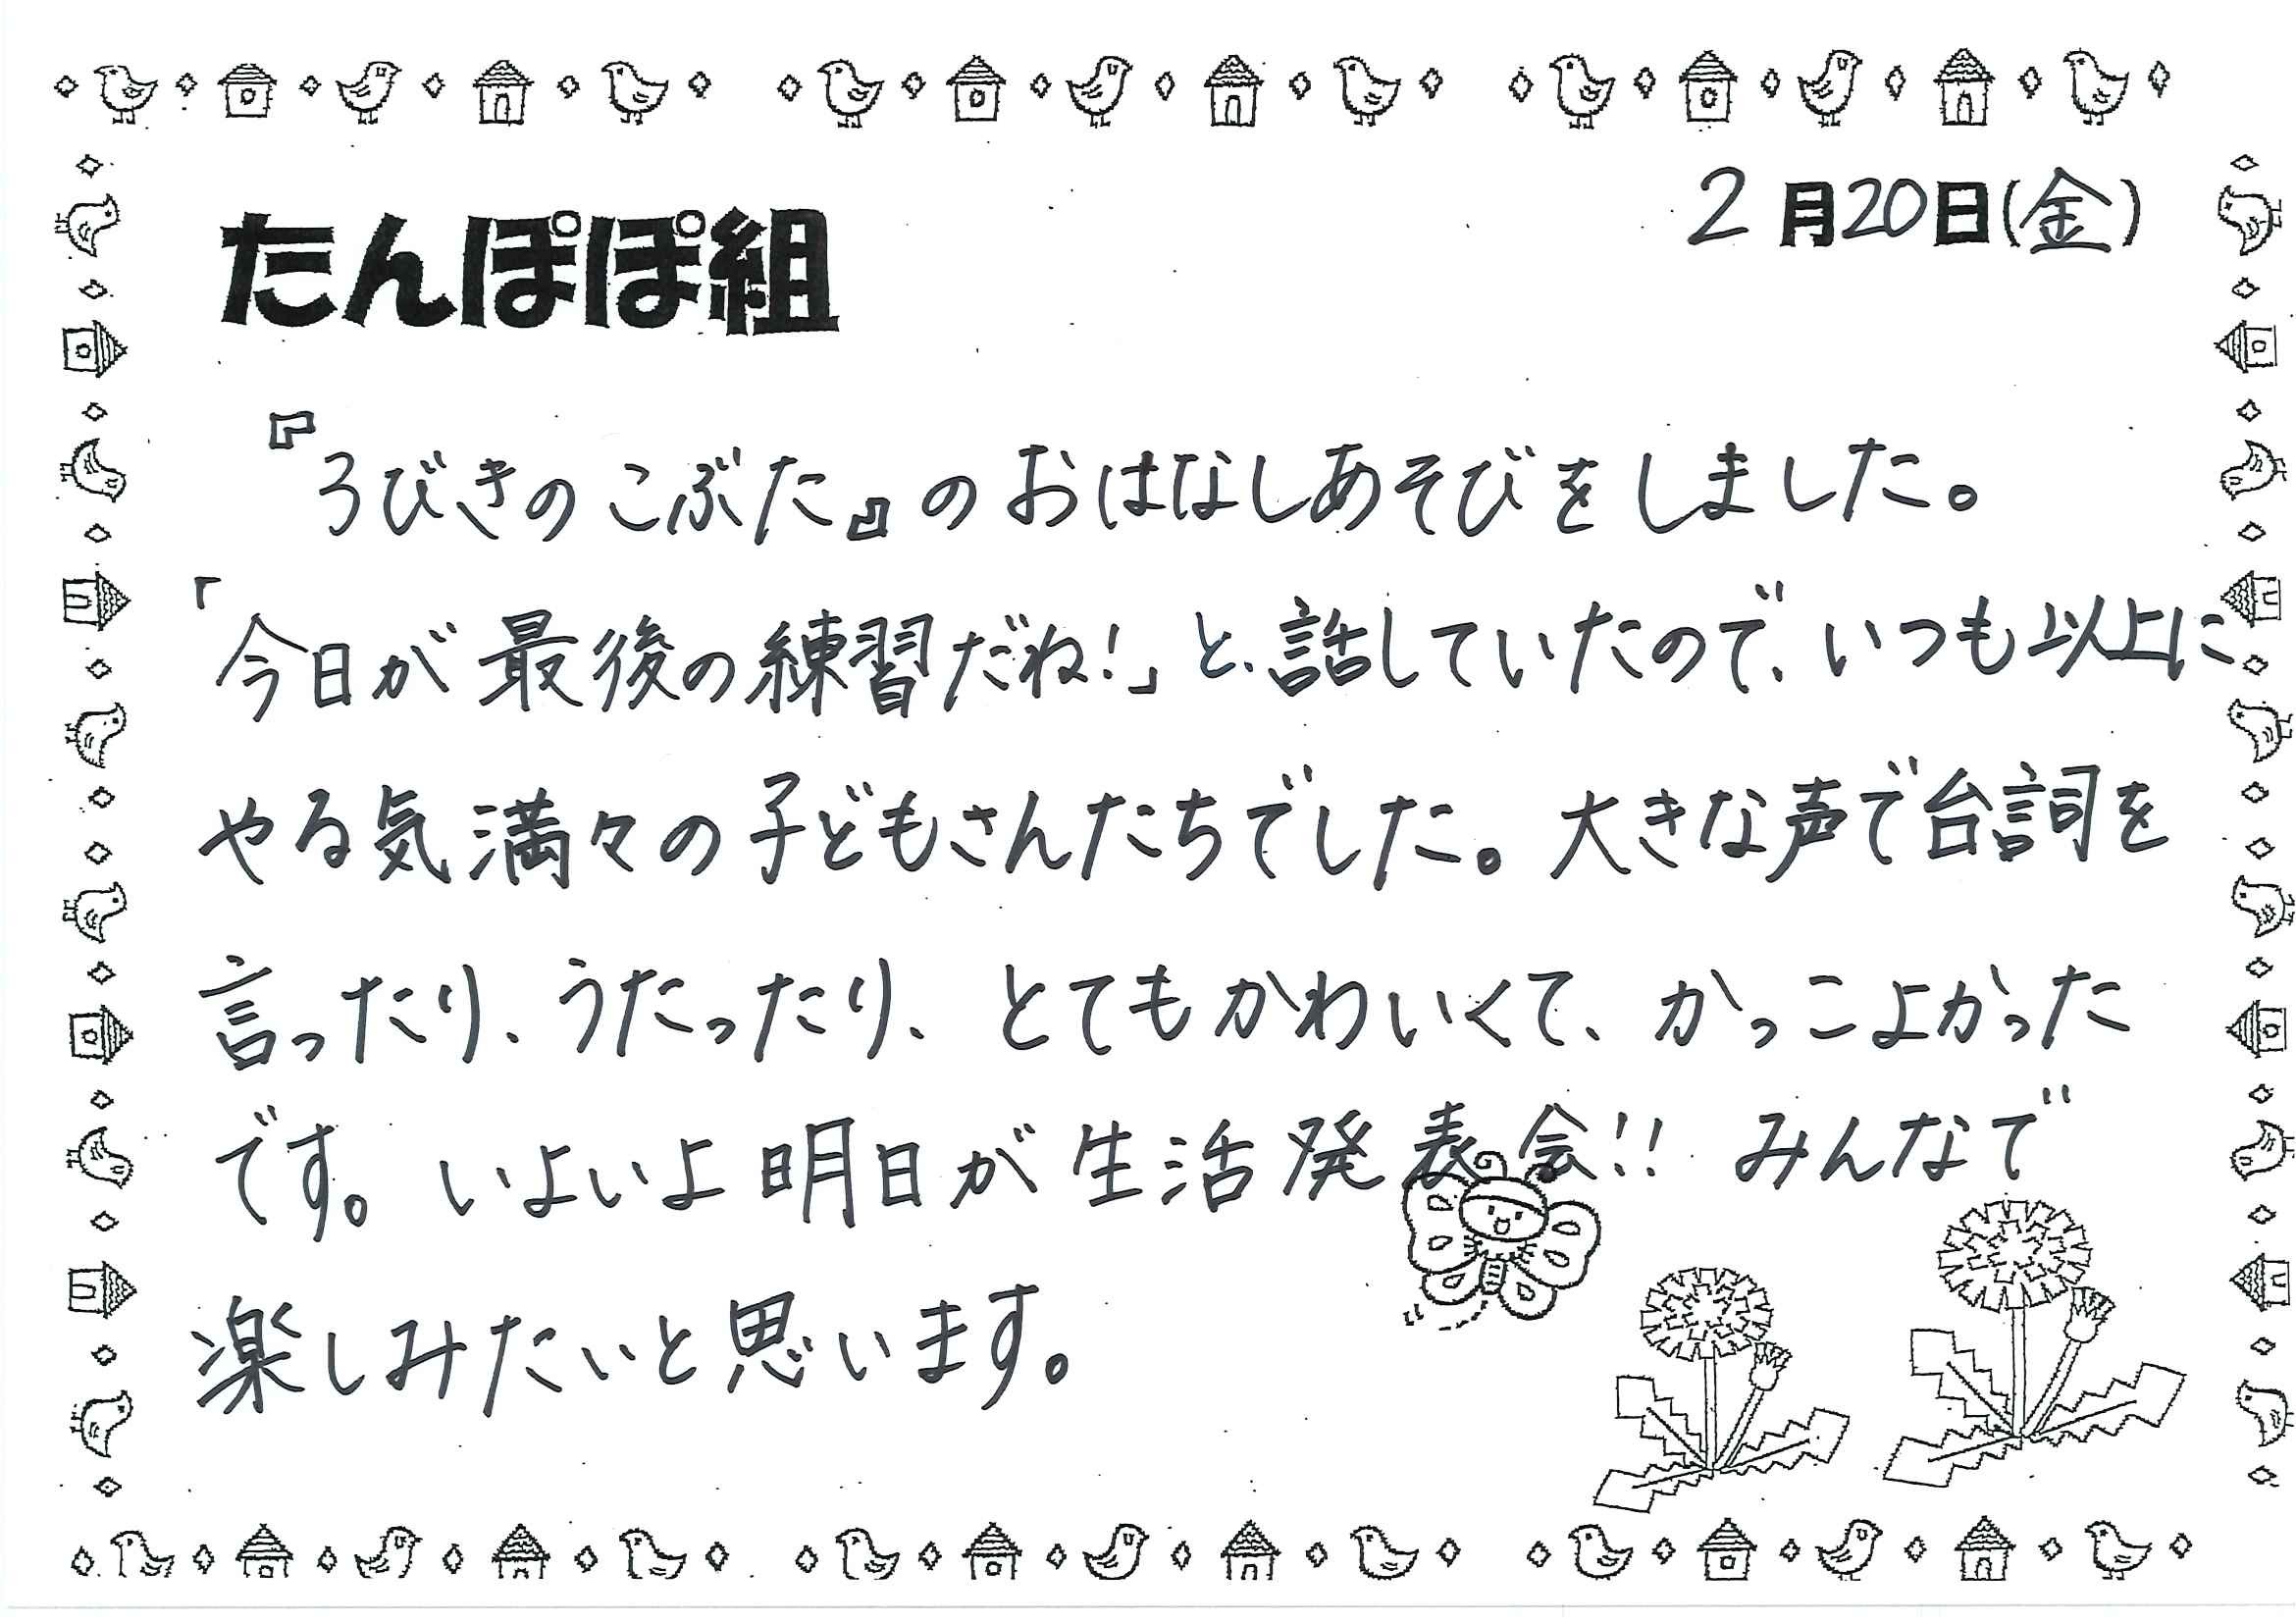 2月20日(金)
たんぽぽ組
『3びきのこぶた』のおはなしあそびをしました。
「今日が最後の練習だね!」と、話していたので、いつも以上に
やる気満々の子どもさんたちでした。大きな声で台詞を
言ったり、うたったり、とてもかわいくて、かっこよかった
です。いよいよ明日が生活発表会!! みんなで
楽しみたいと思います。